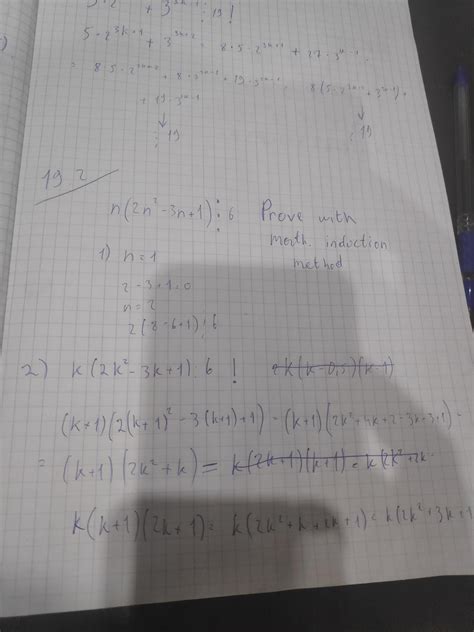 5 · 2 + 3^3k-1 ⋮ 19 !
5 · 2^3k+1 + 3^3k+2 = 8 · 5 · 2^3k-2 + 27 · 3^3k-1
= 8 · 5 · 2 + 8 · 3^3k-1 + 19 · 3^3k-1 8(5 · 2 + 3^3k-1) +
+ 19 · 3^3k-1
↓ ↓
⋮ 19 ⋮ 19
19 2
n(2n² - 3n + 1) ⋮ 6 Prove with
math. induction
method
1) n = 1
2 - 3 + 1 = 0
n = 2
2(8 - 6 + 1) ⋮ 6
2) k(2k² - 3k + 1) ⋮ 6 !
(k+1)(2(k+1)² - 3(k+1) + 1) = (k+1)(2k² + 4k + 2 - 3k - 3 + 1) =
= (k+1)(2k² + k) = k(2k+1)(k+1) = k(2k² + 2k
k(k+1)(2k+1) = k(2k² + k + 2k + 1) = k(2k² + 3k + 1